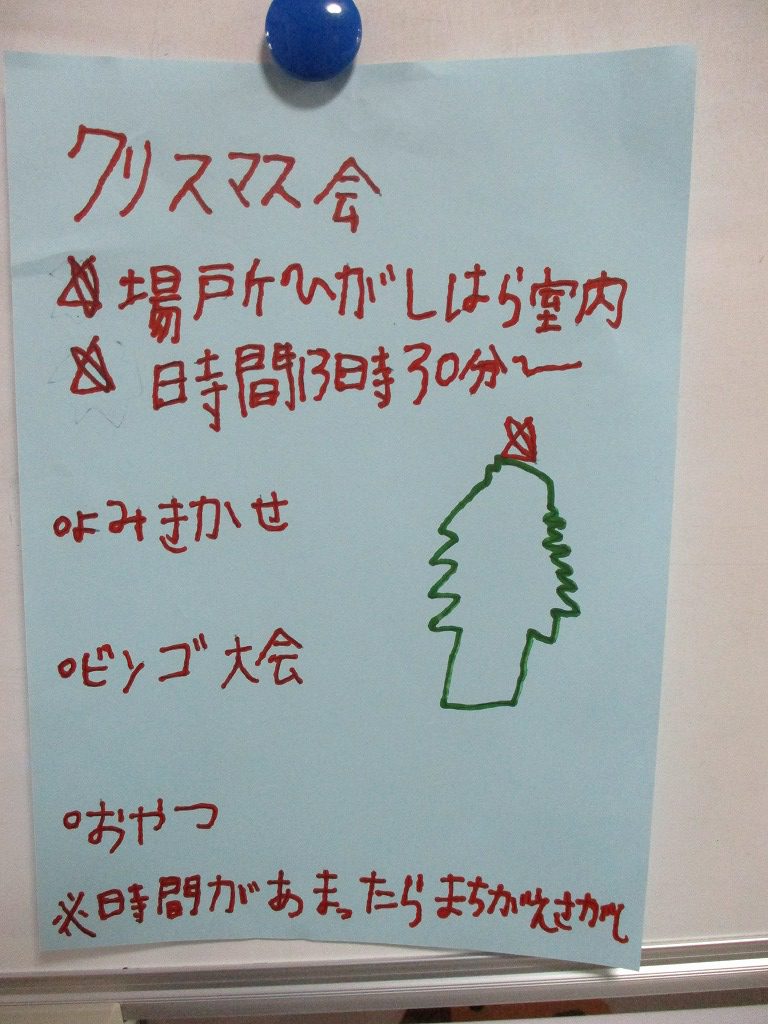 クリスマス会
場所ひがしはら室内
日時間13時30分〜
○よみきかせ
○ビンゴ大会
○おやつ
※日時間があまったらまちがえさがし